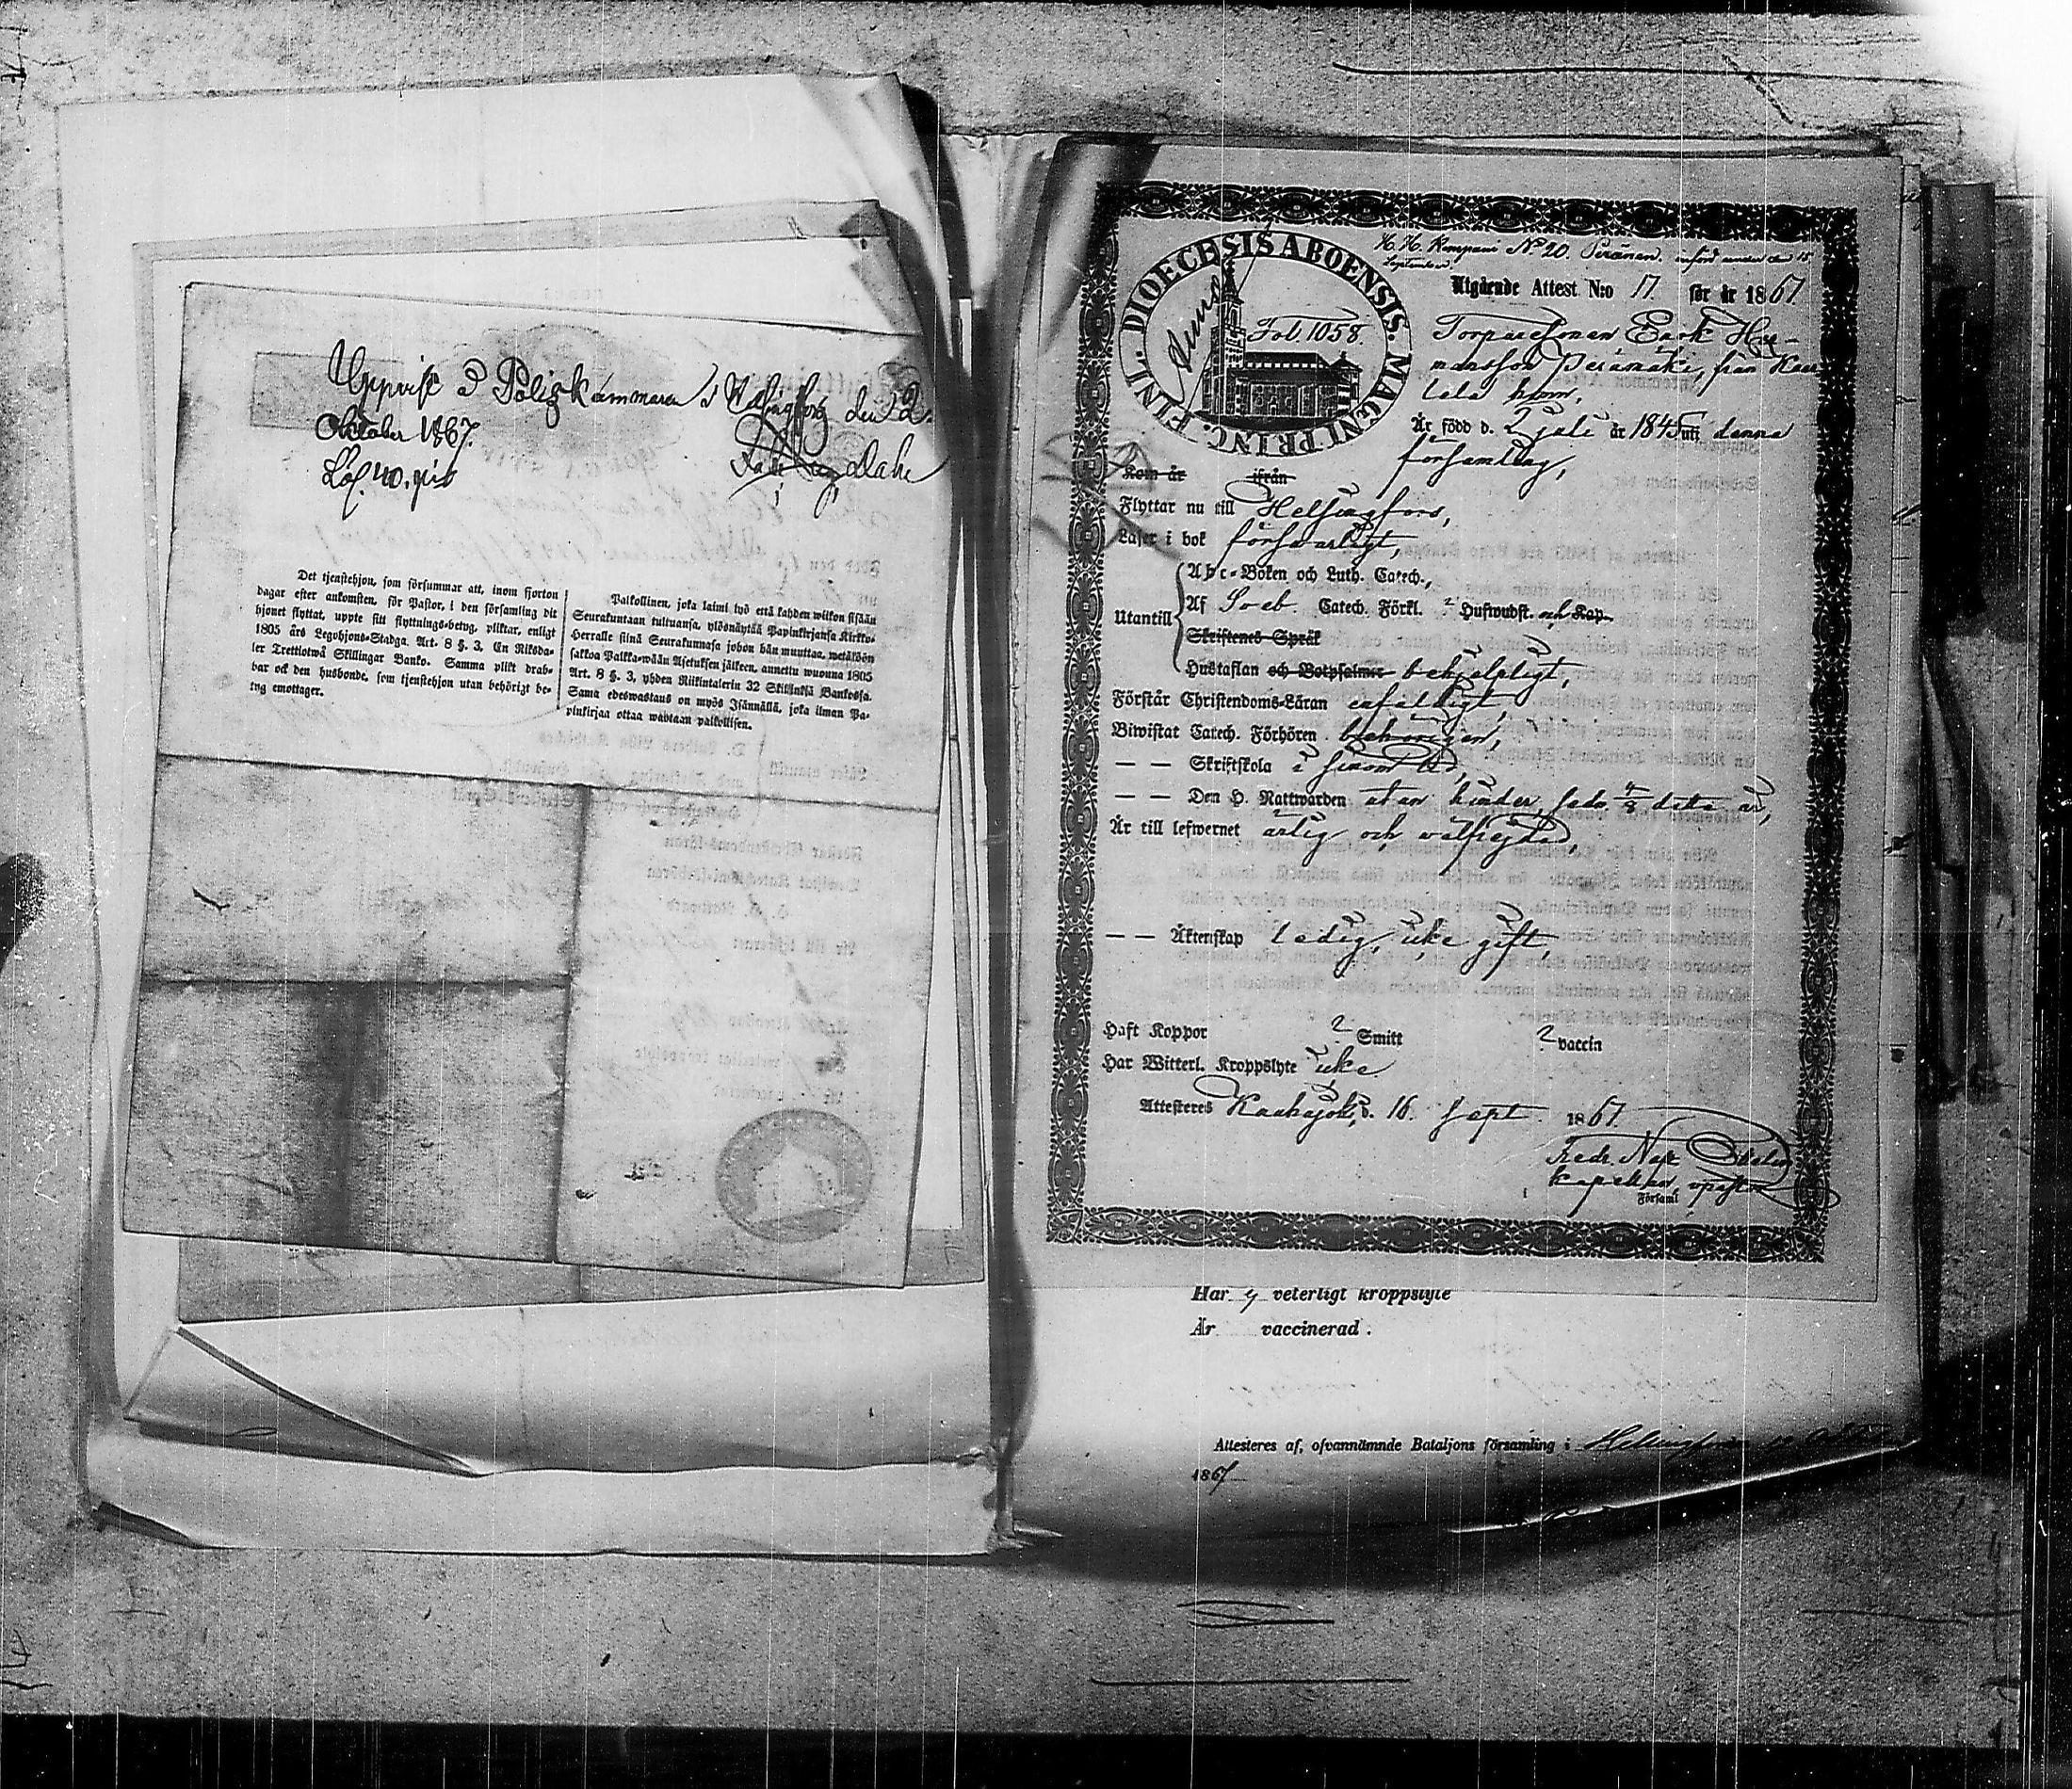 Uppvist i Poliskammaren i Helsingfors den 2.
Oktober 1867.
Det tjenstehjon, som försummar att, inom fjorton
dagar efter ankomsten, för Pastor, i den församling dit
hjonet flyttat, uppte sitt flyttnings-betyg, pliktar, enligt
1805 års Legohjons-Stadga, Art. 8 §. 3, En Riksda-
ler Trettiotwå Skillingar Banko. Samma plikt drab-
bar ock den husbonde, som tjenstehjon utan behörigt be-
tyg emottager.
Palkollinen, joka laimi lyö että kahden wiikon sisään
Seurakuntaan tultuansa, ylösnäyttää Papinkirjansa Kirkko-
Herralle siinä Seurakunnassa johon hän muuttaa, wetäköön
sakkoa Palkka-wään Asetuksen jälkeen, annettu wuonna 1805
Art. 8 §. 3, yhden Riikintalerin 32 Skillinkiä Bankossa.
Sama edeswastaus on myös Isännällä, joka ilman Pa-
pinkirjaa ottaa wastaan palkollisen.
H. H. Kompani No 20. Peränen. införd under den 15
September
DIOECESIS ABOENSIS. MAGNI PRINC. FINL.
Fol. 1058.
Utgående Attest N:o 17 för år 1867
Torparesonen Erik Her-
mansson Perämäki, från Kau-
by,
Är född d. 2 juli år 1845 uti denna
församling,
Kom år ifrån
Flyttar nu till Helsingfors,
Läser i bok försvarligt,
Utantill
Abc-Boken och Luth. Catech.,
Af Sveb. Catech. Förkl. Husfwudst. och Kap.
Skriftenes Språk
Hustaflan och Botpsalmer behjelpligt,
Förstår Christendoms-Läran enfaldigt,
Biwistat Catech. Förhören behörigen,
— — Skriftskola i sinom tid,
— — Den H. Nattwarden utan hinder, sedn. 4/8 detta år,
Är till lefwernet ärlig och välfrejdad,
— — Äktenskap ledig, icke gift,
Haft Koppor ? Smitt ? vaccin
Har Witterl. Kroppslyte icke
Attesteres Kauhajoki, d. 16 Sept. 1867.
Fredr. Nap.
kapellan, vpastor
Församl
Har ej veterligt kroppslyte
Är vaccinerad.
Attesteres af, ofvannämnde Bataljons församling i Helsingfors
1867